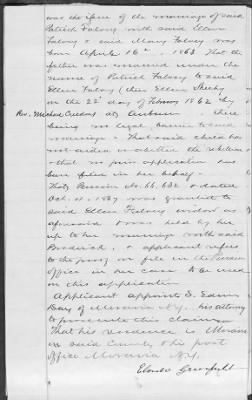 was the issue of the marriage of said
Patrick Falvey with said Ellen
Falvey & said Mary Falvey was
born April 16th 1863 That the
father was married under the
name of Patrick Falvey to said
Ellen Falvey (then Ellen Sheehy
on the 22 day of February 1862 by
Rev. Michael at Auburn there
being no legal barrier to said
marriage. That said child has
not aided or abetted the rebellion
that no prior application has
been filed in her behalf
That Pension No. 66,682 dated
Oct. 11, 1867 was granted to
said Ellen Falvey widow as
aforesaid & was held by her
up to her marriage with said
Broderick, & applicant refers
to the proof on file in the Pension
Office in her case to be used
in this application
Applicant appoints S. Edwin
Day of Moravia N.Y. his attorney
to prosecute this claim
That his residence is Moravia
in said County & his post
office Moravia N.Y.
Alonzo